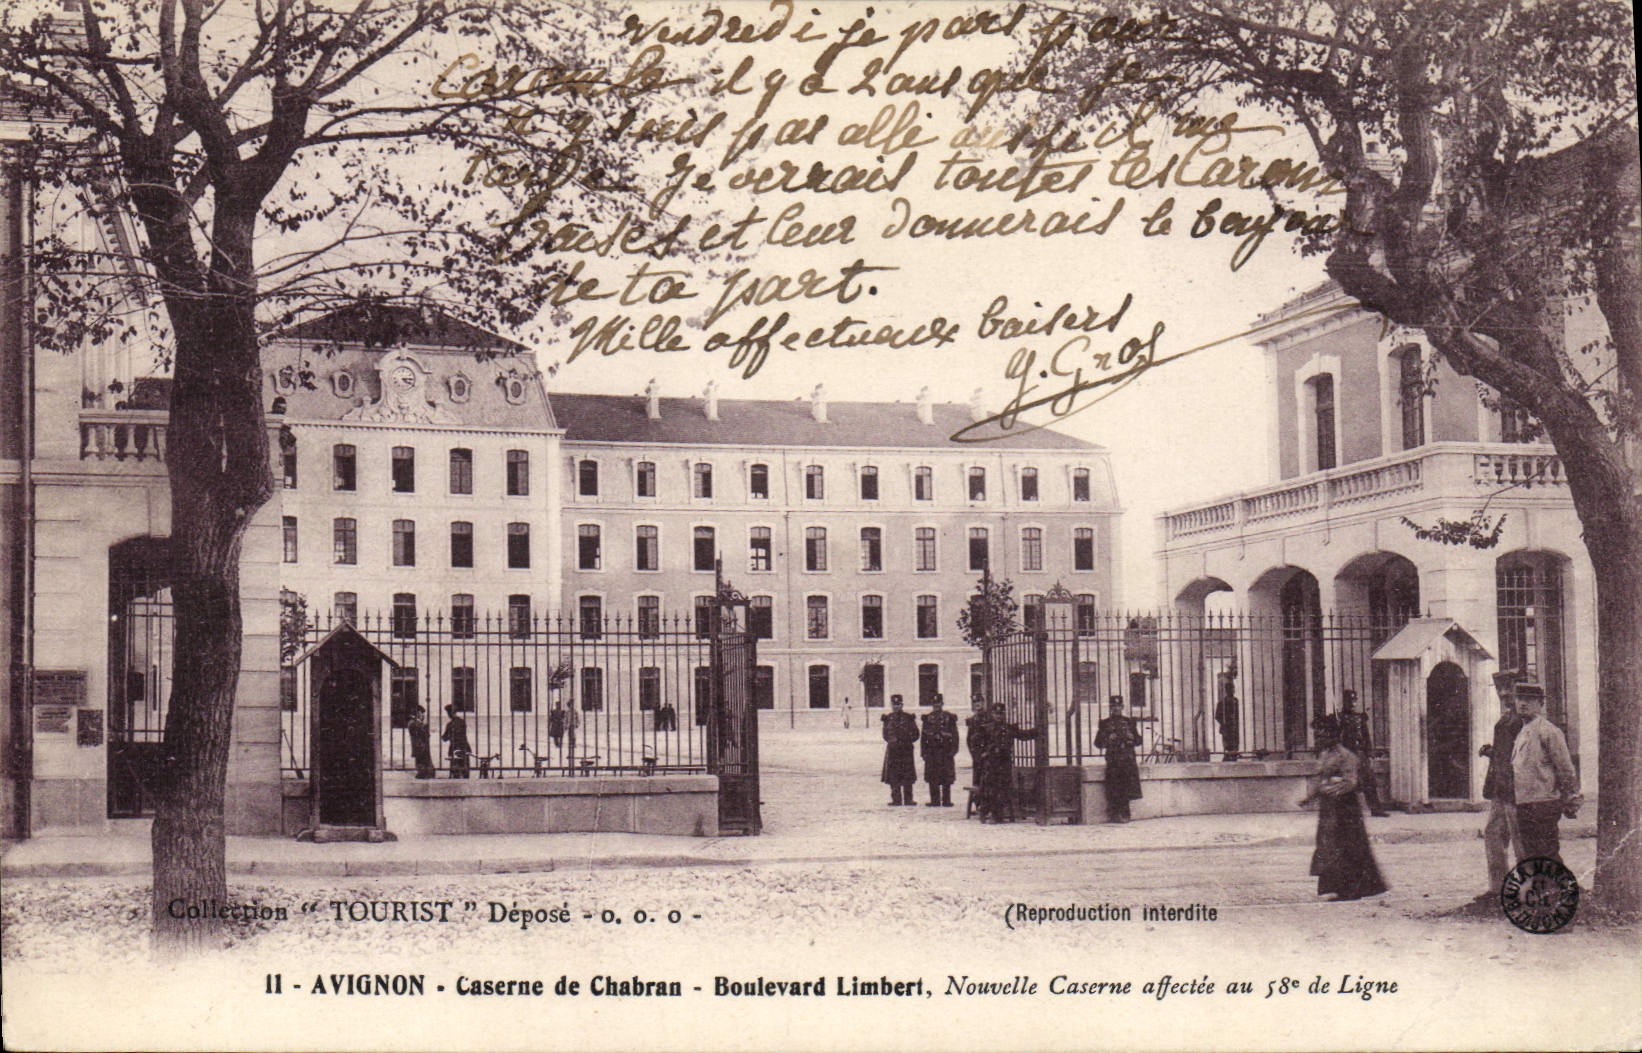 vendredi je pars pour
Caromb il y a 2 ans que je
n'y suis pas allé aussi il me
tarde Je verrais toutes les Carom
baises et leur donnerais le bonjour
de ta part.
Mille affectueux baisers
G. Gros
Collection “ TOURIST ” Déposé - o. o. o -
(Reproduction interdite
11 - AVIGNON - Caserne de Chabran - Boulevard Limbert, Nouvelle Caserne affectée au 58e de Ligne